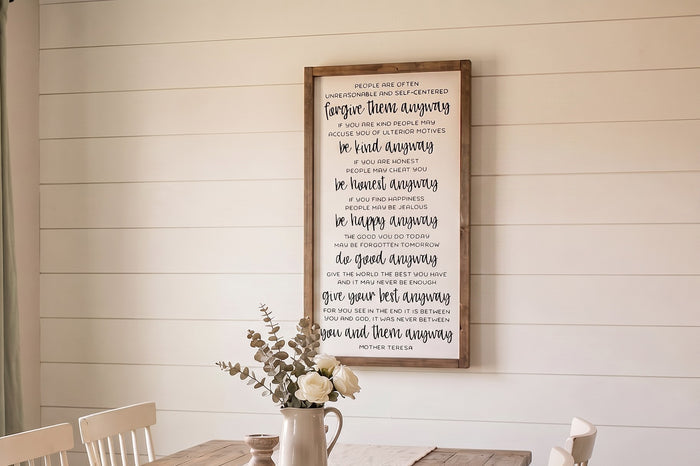 PEOPLE ARE OFTEN
UNREASONABLE AND SELF-CENTERED
forgive them anyway
IF YOU ARE KIND PEOPLE MAY
ACCUSE YOU OF ULTERIOR MOTIVES
be kind anyway
IF YOU ARE HONEST
PEOPLE MAY CHEAT YOU
be honest anyway
IF YOU FIND HAPPINESS
PEOPLE MAY BE JEALOUS
be happy anyway
THE GOOD YOU DO TODAY
MAY BE FORGOTTEN TOMORROW
do good anyway
GIVE THE WORLD THE BEST YOU HAVE
AND IT MAY NEVER BE ENOUGH
give your best anyway
FOR YOU SEE IN THE END IT IS BETWEEN
YOU AND GOD, IT WAS NEVER BETWEEN
you and them anyway
MOTHER TERESA